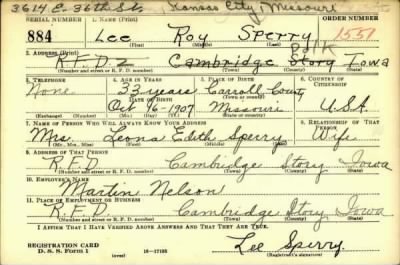 3614 E. 36th St. Kansas City, Missouri
SERIAL NUMBER 1. NAME (Print) ORDER NUMBER
884 Lee Roy Sperry 1551
(First) (Middle) (Last)
2. ADDRESS (Print) Polk
R.F.D. 2 Cambridge Story Iowa
(Number and street or R. F. D. number) (Town) (County) (State)
3. TELEPHONE 4. AGE IN YEARS 5. PLACE OF BIRTH 6. COUNTRY OF CITIZENSHIP
None 33 years Carroll County
DATE OF BIRTH (Town or county)
Oct 16-1907 Missouri U.S.A.
(Exchange) (Number) (Mo.) (Day) (Yr.) (State or country)
7. NAME OF PERSON WHO WILL ALWAYS KNOW YOUR ADDRESS 8. RELATIONSHIP OF THAT PERSON
Mrs. Leona Edith Sperry Wife
(Mr., Mrs., Miss) (First) (Middle) (Last)
9. ADDRESS OF THAT PERSON
R.F.D Cambridge Story Iowa
(Number and street or R. F. D. number) (Town) (County) (State)
10. EMPLOYER'S NAME
Martin Nelson
11. PLACE OF EMPLOYMENT OR BUSINESS
R.F.D. Cambridge Story Iowa
(Number and street or R. F. D. number) (Town) (County) (State)
I AFFIRM THAT I HAVE VERIFIED ABOVE ANSWERS AND THAT THEY ARE TRUE.
REGISTRATION CARD
D. S. S. Form 1 (over) 16-17105 Lee Sperry
(Registrant's signature)